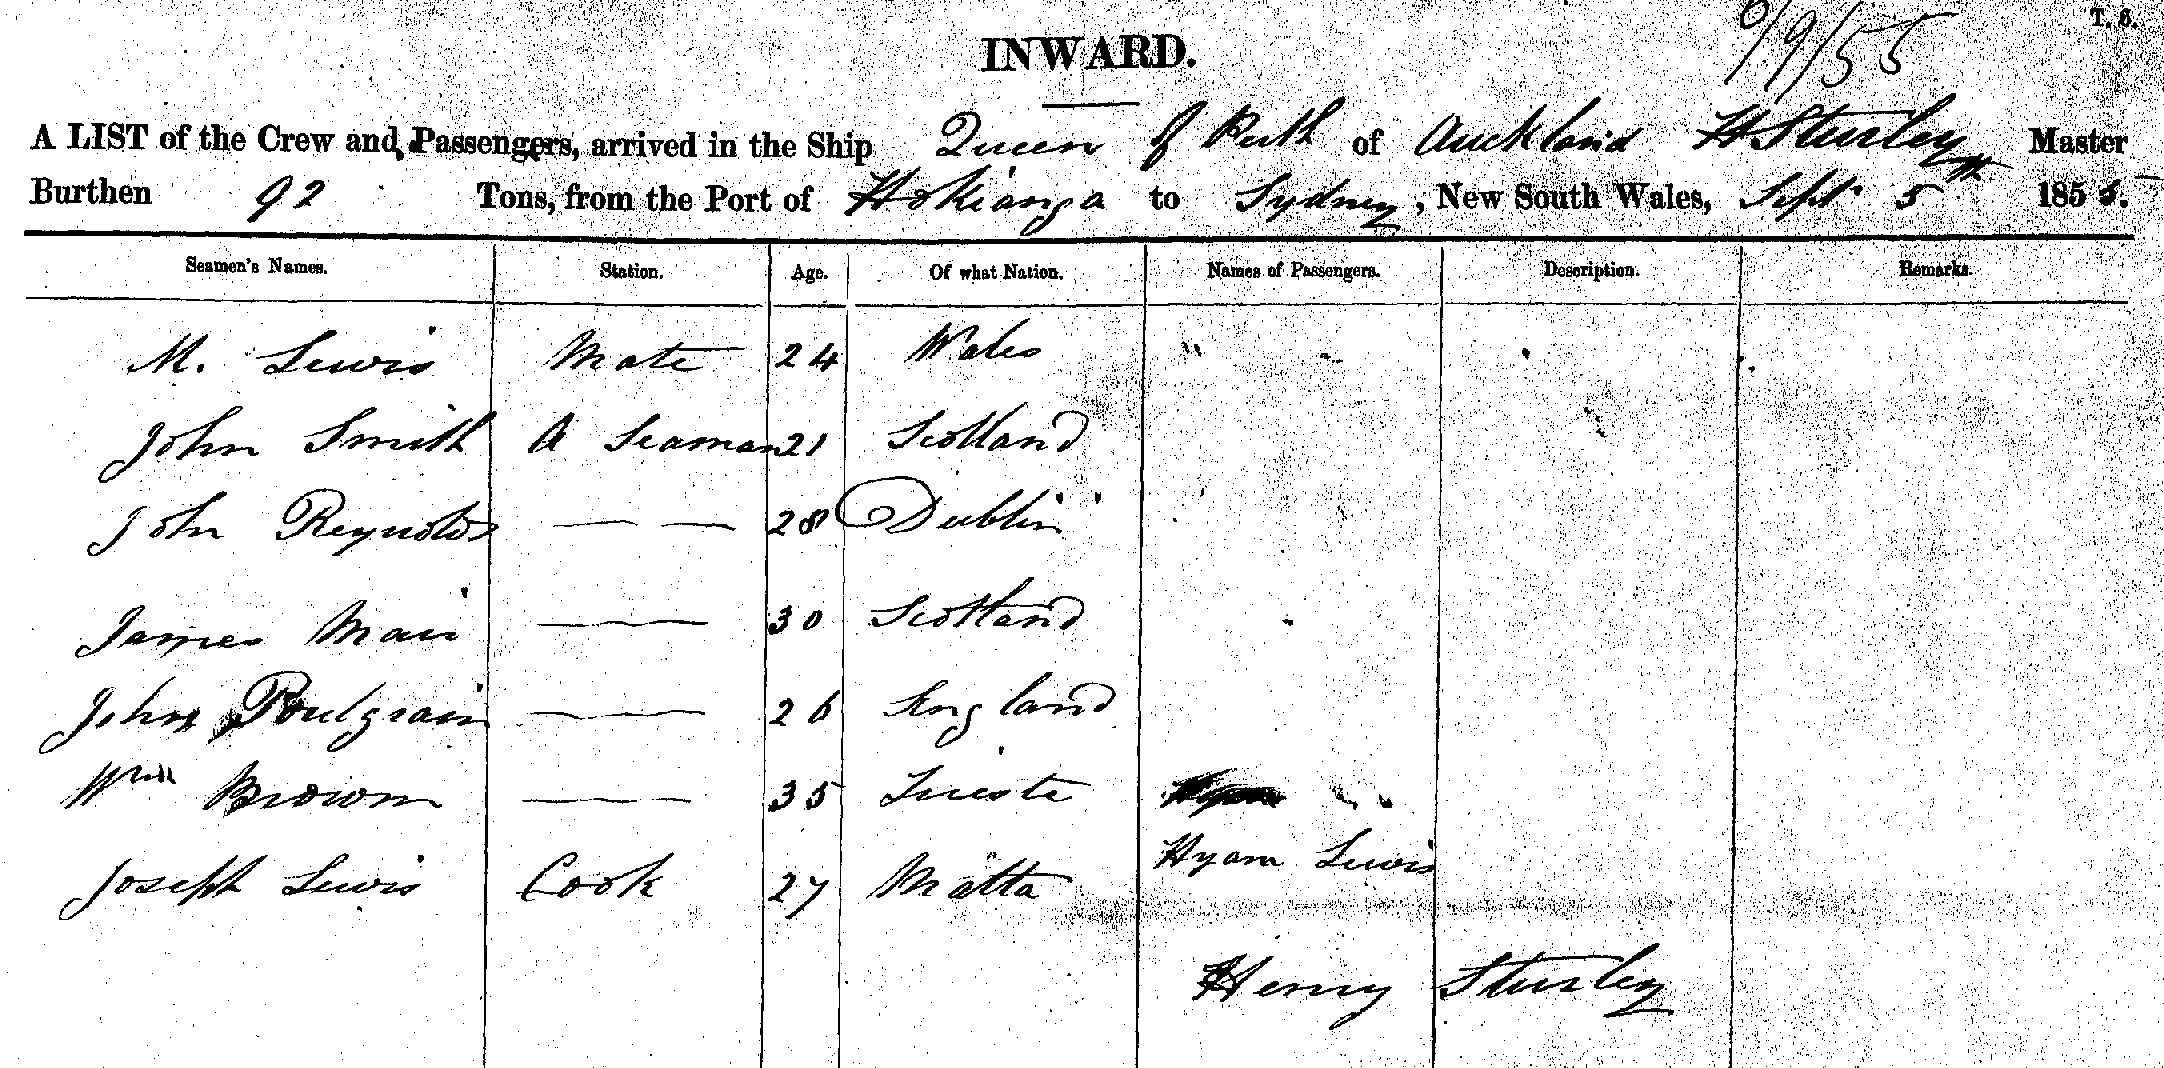 9/9/55
T. 8.
INWARD.
A LIST of the Crew and Passengers, arrived in the Ship Queen of Perth of Auckland H Sturley Master
Burthen 92 Tons, from the Port of Hokianga to Sydney, New South Wales, Sept 5th 1855.
Seamen's Names. Station. Age. Of what Nation. Names of Passengers. Description. Remarks.
M. Lewis Mate 24 Wales " "
John Smith A Seaman 21 Scotland
John Reynolds — — 28 Dublin
James Mair — — 30 Scotland
John Poulgrain — — 26 England
Wm Brown — — 35 Trieste
Hyam Lewis
Joseph Lewis Cook 27 Malta
Henry Sturley